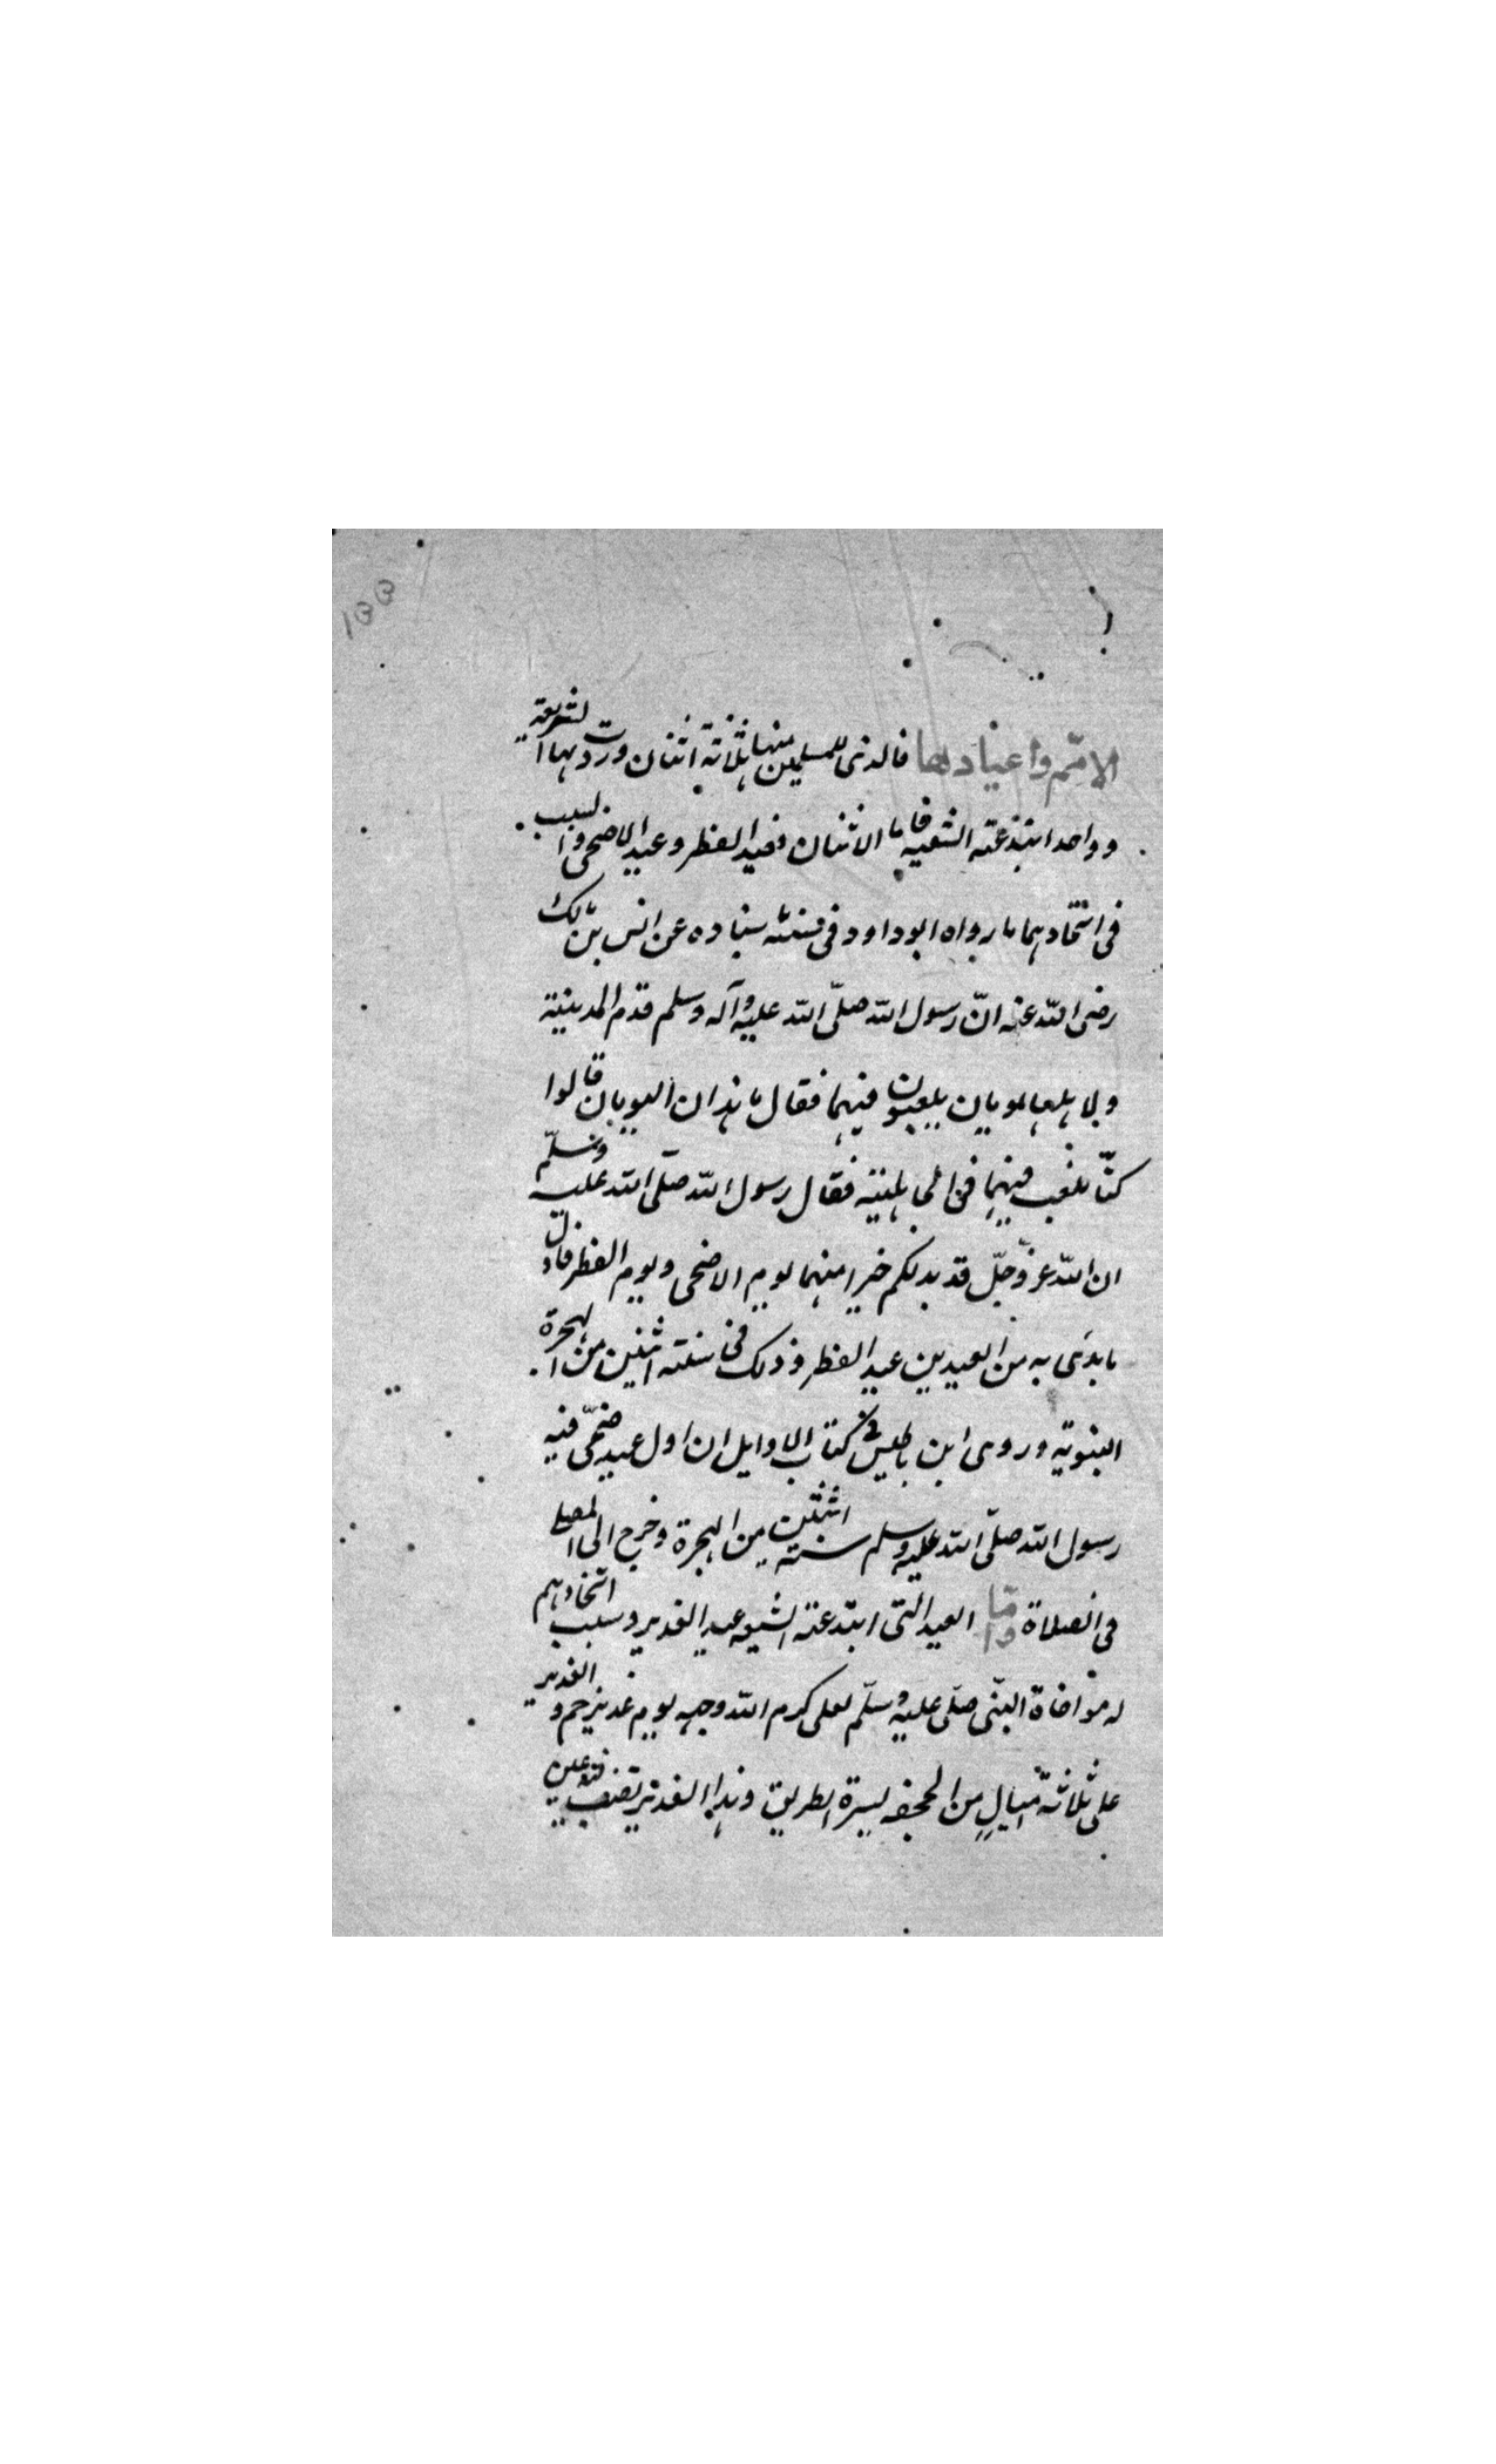 الامم واعيادها فالذى للمسلمين منها ثلاثة اثنان وردت بهما الشريعة
وواحد ابتدعته الشيعه فاما الاثنان فعيد الفطر وعيد الاضحى والسبب
فى اتخاذهما ما رواه ابو داود فى سننه بسناده عن انس بن مالك
رضى الله عنه انّ رسول الله صلّى الله عليه وآله وسلم قدم المدينة
ولاهلها يومان يلعبون فيهما فقال ما هذان اليومان قالوا
كنّا نلعب فيهما فى الجاهلية فقال رسول الله صلّى الله عليه وسلّم
ان الله عزّ وجلّ قد بدلكم خيرا منهما يوم الاضحى ويوم الفطر فاول
ما بدى به من العيدين عيد الفطر وذلك فى سنة اثنين من الهجرة
النبوية وروى ابن باطيس فى كتاب الاوايل ان اول عيد ضحّى فيه
رسول الله صلّى الله عليه وسلم سنة اثنتين من الهجرة وخرج الى المصلى
فى الصلاة وامّا العيد التى ابتدعته الشيعه عيد الغدير وسبب اتخاذهم
له مواخاة النبى صلّى عليه وسلّم لعلى كرم الله وجهه يوم غدير خم والغدير
على ثلاثة اميال من الجحفه يسرة الطريق وهذا الغدير تصب فيه عين